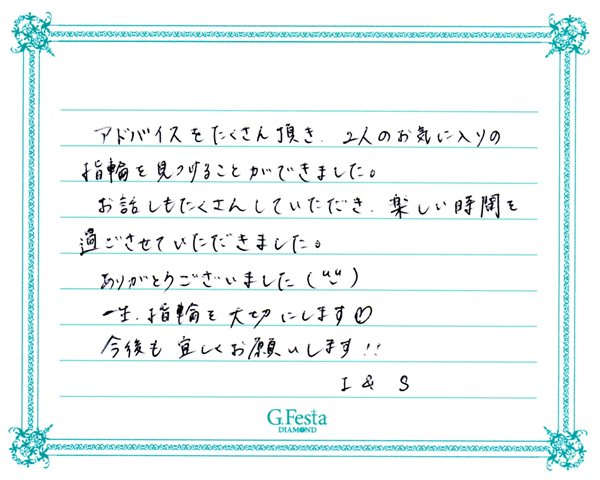 アドバイスをたくさん頂き、2人のお気に入りの
指輪を見つけることができました。
お話しもたくさんしていただき、楽しい時間を
過ごさせていただきました。
ありがとうございました(¨)
一生、指輪を大切にします♡
今後も宜しくお願いします!!
I & S
G.Festa
DIAMOND